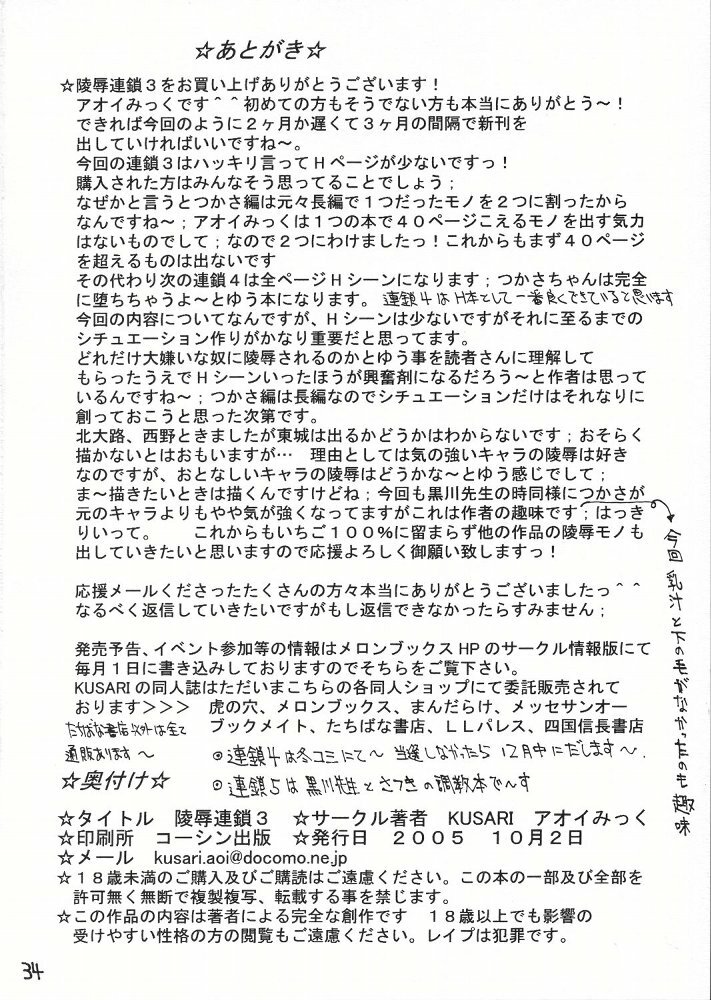 ☆あとがき☆
☆陵辱連鎖３をお買い上げありがとうございます！
アオイみっくです＾＾初めての方もそうでない方も本当にありがとう～！
できれば今回のように２ヶ月か遅くて３ヶ月の間隔で新刊を
出していければいいですね～。
今回の連鎖３はハッキリ言ってＨページが少ないですっ！
購入された方はみんなそう思ってることでしょう；
なぜかと言うとつかさ編は元々長編で１つだったモノを２つに割ったから
なんですね～；アオイみっくは１つの本で４０ページこえるモノを出す気力
はないものでして；なので２つにわけましたっ！これからもまず４０ページ
を超えるものは出ないです
その代わり次の連鎖４は全ページＨシーンになります；つかさちゃんは完全
に堕ちちゃうよ～とゆう本になります。連鎖４はＨ本として一番良くできていると思います
今回の内容についてなんですが、Ｈシーンは少ないですがそれに至るまでの
シチュエーション作りがかなり重要だと思ってます。
どれだけ大嫌いな奴に陵辱されるのかとゆう事を読者さんに理解して
もらったうえでＨシーンいったほうが興奮剤になるだろう～と作者は思って
いるんですね～；つかさ編は長編なのでシチュエーションだけはそれなりに
創っておこうと思った次第です。
北大路、西野ときましたが東城は出るかどうかはわからないです；おそらく
描かないとはおもいますが…　理由としては気の強いキャラの陵辱は好き
なのですが、おとなしいキャラの陵辱はどうかな～とゆう感じでして；
ま～描きたいときは描くんですけどね；今回も黒川先生の時同様につかさが
元のキャラよりもやや気が強くなってますがこれは作者の趣味です；はっき
りいって。　　これからもいちご１００％に留まらず他の作品の陵辱モノも
出していきたいと思いますので応援よろしく御願い致しますっ！
今回乳汁と下の毛がなかったのも趣味
応援メールくださったたくさんの方々本当にありがとうございましたっ＾＾
なるべく返信していきたいですがもし返信できなかったらすみません；
発売予告、イベント参加等の情報はメロンブックスHPのサークル情報版にて
毎月１日に書き込みしておりますのでそちらをご覧下さい。
KUSARIの同人誌はただいまこちらの各同人ショップにて委託販売されて
おります＞＞＞　虎の穴、メロンブックス、まんだらけ、メッセサンオー
ブックメイト、たちばな書店、ＬＬパレス、四国信長書店
たちばな書店以外は全て
通販あります～
◎連鎖４は冬コミにて～当選しなかったら１２月中にだします～．
◎連鎖５は黒川先生とさつきの調教本で～す
☆奥付け☆
☆タイトル　陵辱連鎖３　☆サークル著者　KUSARI　アオイみっく
☆印刷所　コーシン出版　☆発行日　２００５　１０月２日
☆メール　kusari.aoi@docomo.ne.jp
☆１８歳未満のご購入及びご購読はご遠慮ください。この本の一部及び全部を
許可無く無断で複製複写、転載する事を禁じます。
☆この作品の内容は著者による完全な創作です　１８歳以上でも影響の
受けやすい性格の方の閲覧もご遠慮ください。レイプは犯罪です。
34